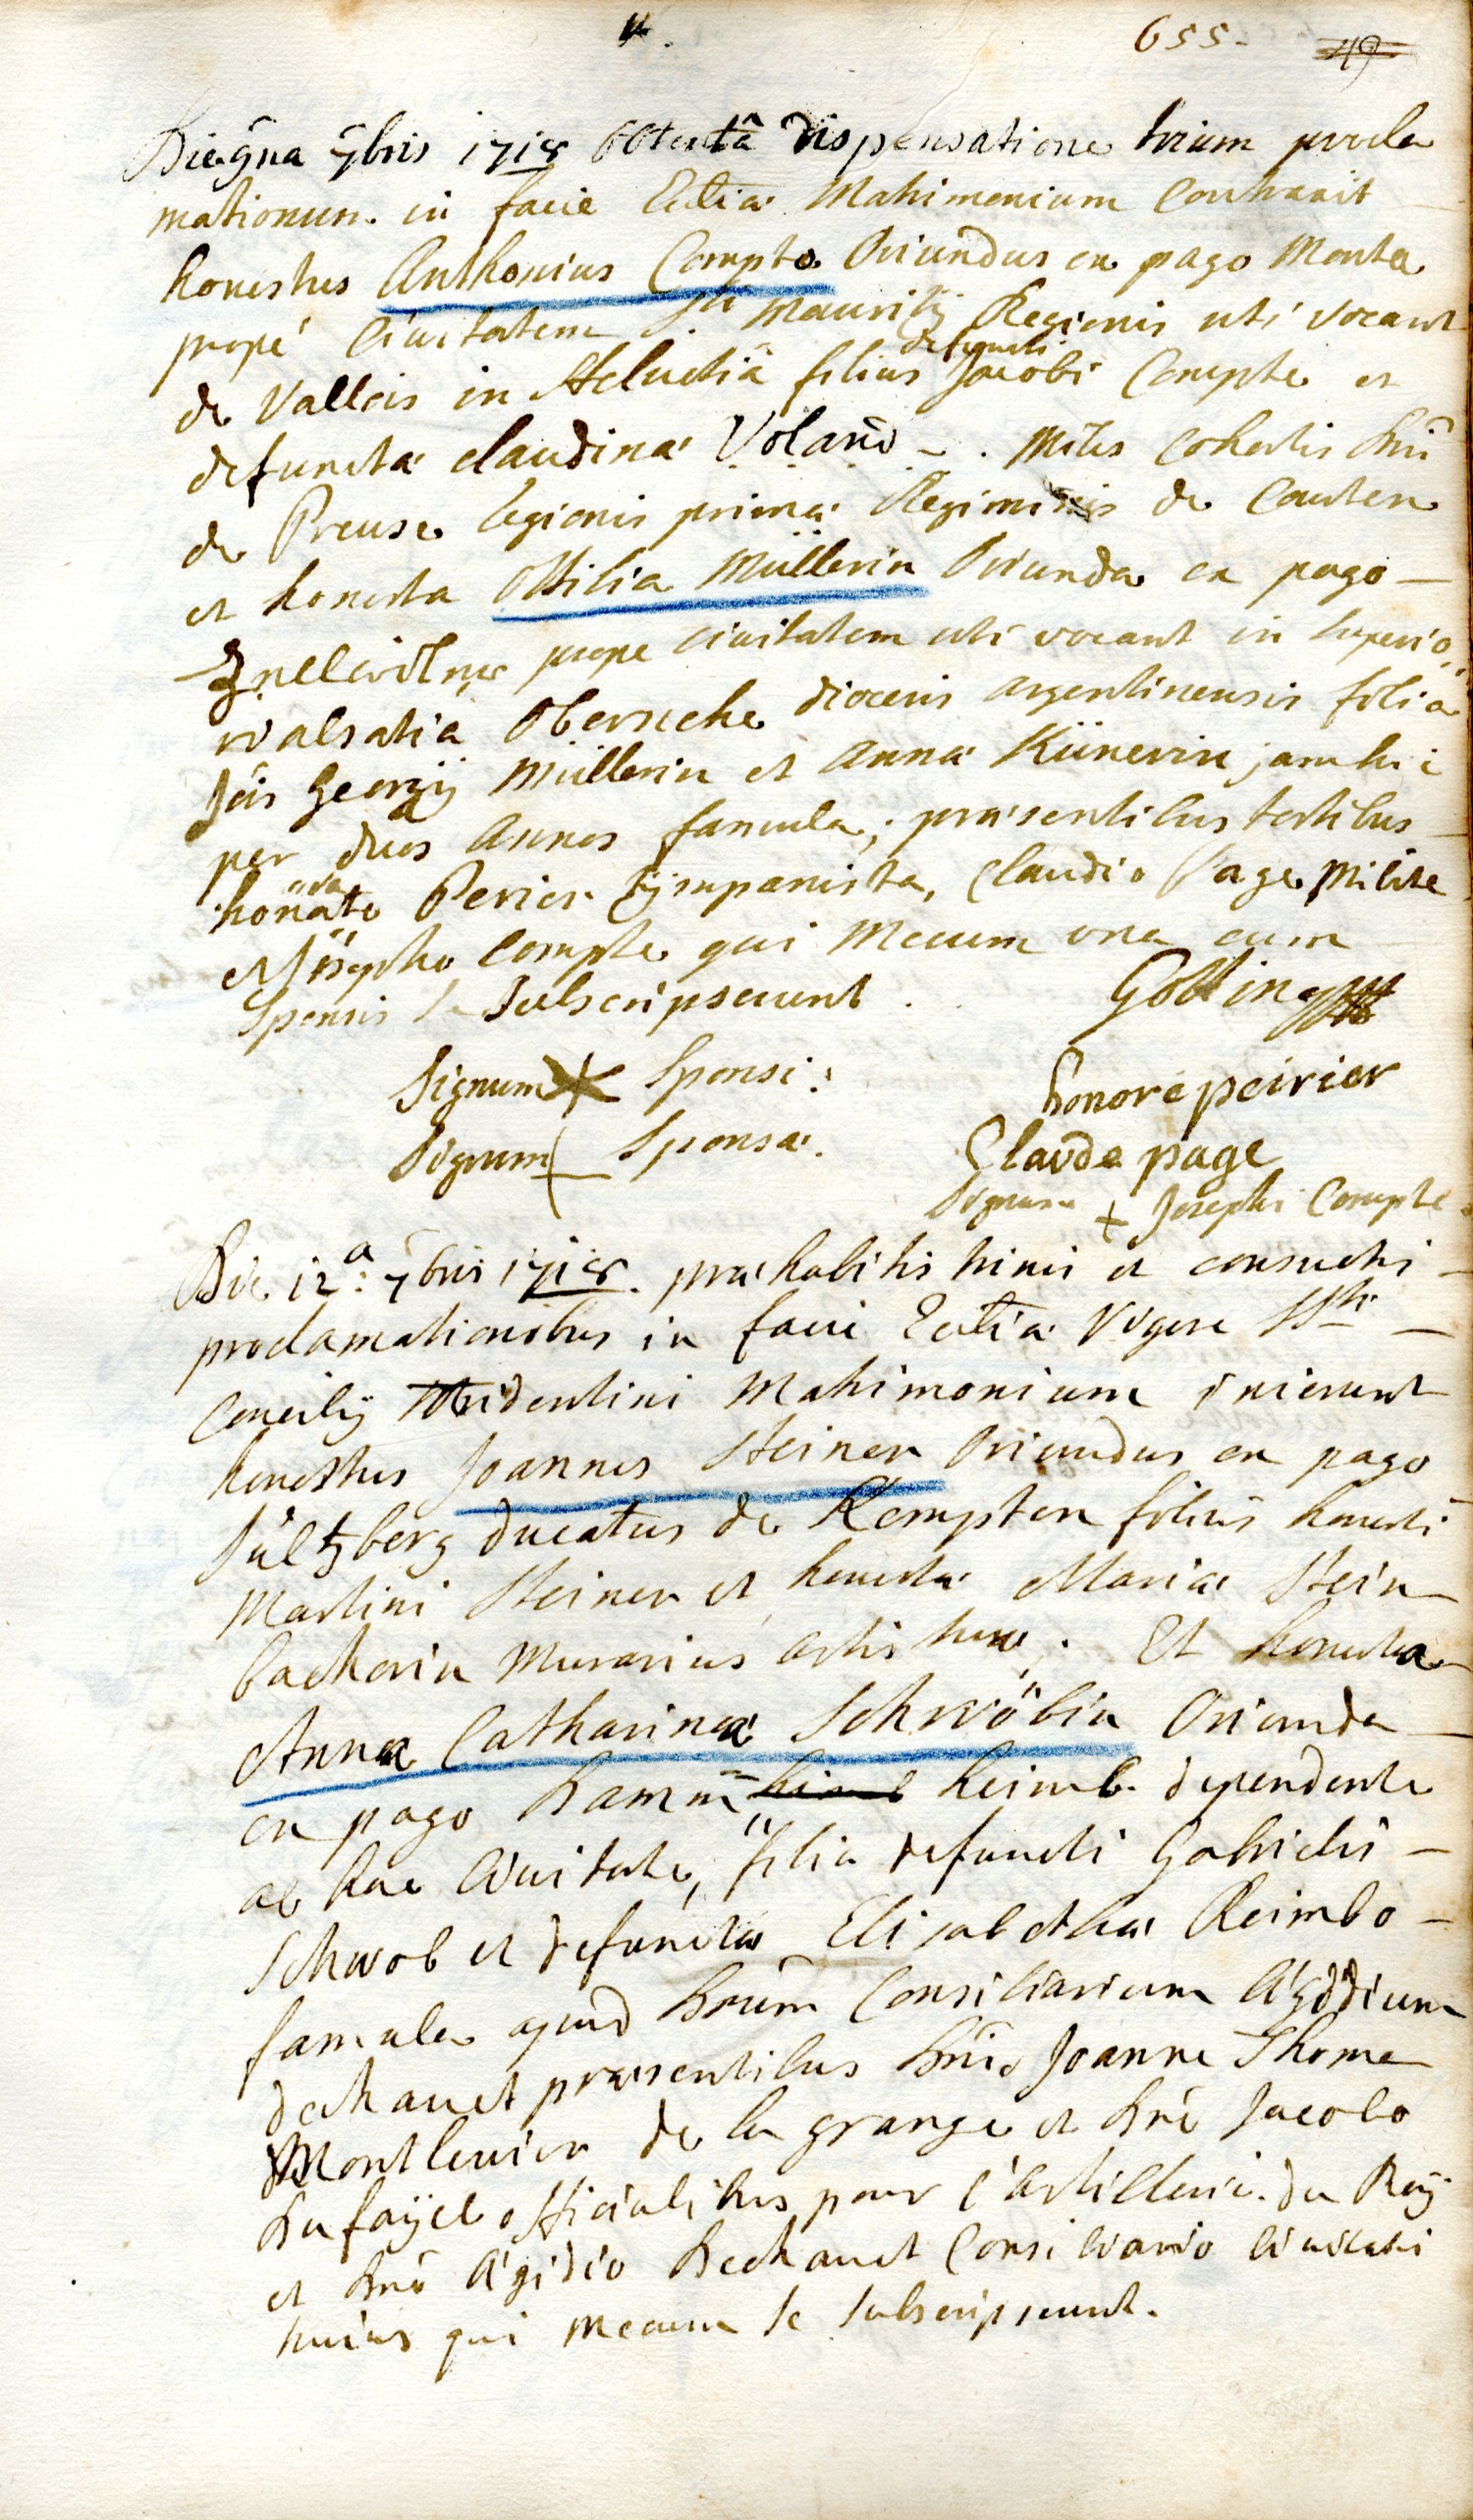 655.
49
Die 9na 7bris 1718 obtentâ dispensatione trium procla
mationum in facie Ecclæ Matrimonium Contraxit
honestus Anthonius Compte Oriundus ex pago Monta
propé Civitatem Sti Mauritij Regionis uti vocant
defuncti
de Valleis in Helvetiâ filius Jacobi Compte et
defunctæ claudinæ Volanó - . Miles Cohortis Dni
de Preuse legionis primæ Regiminis de Courten
et honesta Ottilia Müllerin Oriunda ex pago -
prope civitatem uti vocant in superio,,
ri alsatia Obersiche diocesis argentinensis filia
Jois Georgij Müllerin et annæ Künerin jam hic
per duos annos famula; præsentibus testibus
honorato Perier Tÿmpanista, Claudio Page Milite
et Josepho Compte qui Mecum una cum
Sponsis se subscripserunt.
Gotting
Signum X Sponsi.
honoré peirier
Signum + Sponsæ.
Claude page
Signum + Josephi Compte.
Die 12a: 7bris 1718. præhabitis trinis et consuetis -
proclamationibus in facie Ecclæ Vigore SSti -
Concilij Tridentini Matrimonium inierunt
honestus Joannes Steiner Oriundus ex pago
Sültzberg ducatus de Kempten filius honesti
Martini Steiner et honestæ Mariæ Stein
bacherin Murarius artis suæ. Et honesta
Anna Catharina Schwöbin Oriunda -
ex pago Damm= heimb dependente
ab hac Civitate, filia defuncti Gabrielis -
Schwob et defunctæ Elisabethæ Reimbo -
famula apud Dnum Consiliarium Ægidium
dechauet præsentibus Dno Joanne Thoma
Montlevier de la grange et Dno Jacobo
Dufaÿel officialibus pour l'artillerie du Roÿ
et Dno Ægidio Dechauet Consiliario Civitatis
huius qui mecum se subscripserunt.